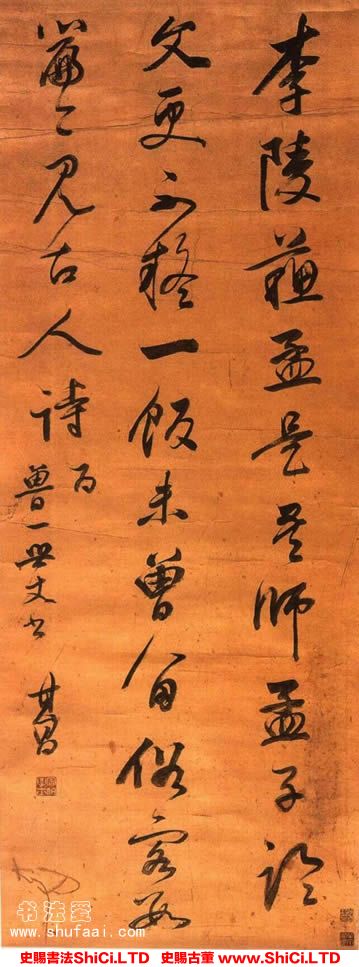 李陵蘓孟是吾師孟子論
文更不疑一飯未曾留俗客數
篇今見古人詩
魯一世丈書 其昌
书法爱
www.shufaai.com
史賜書法ShiCi.LTD 史賜古董 www.ShiCi.LTD